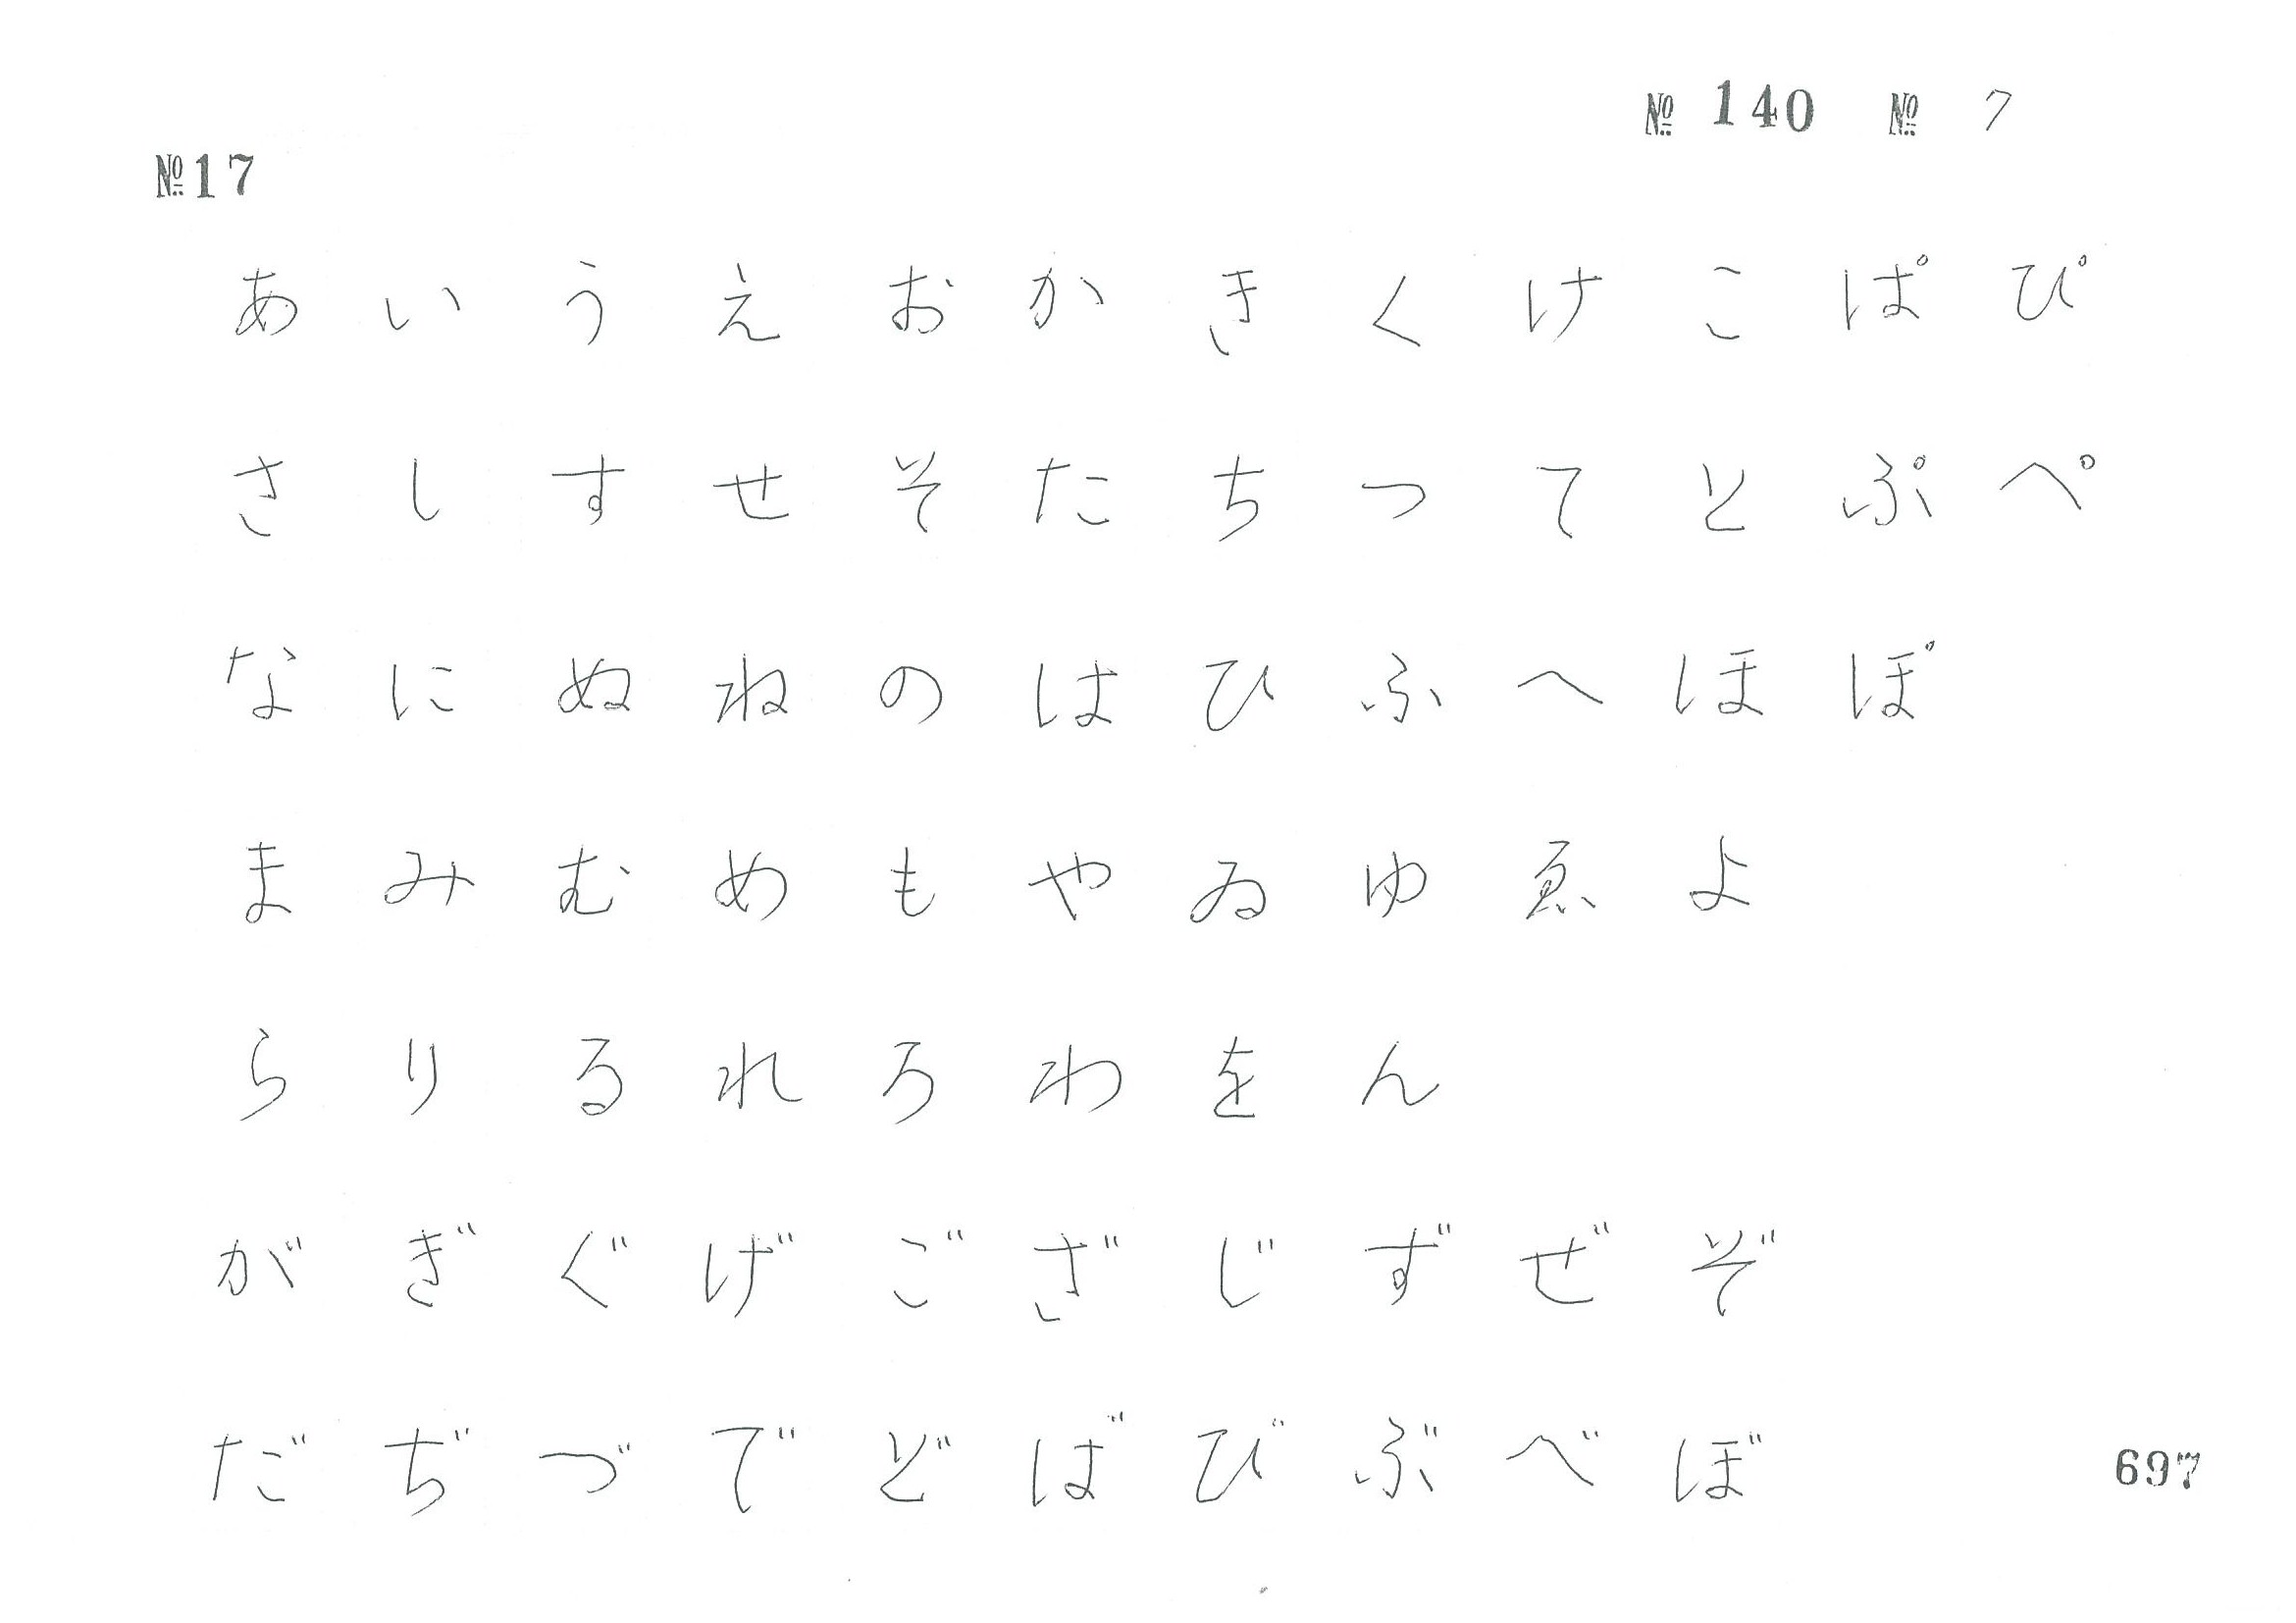 № 140 № 7
№17
あ い う え お か き く け こ ぱ ぴ
さ し す せ そ た ち つ て と ぷ ぺ
な に ぬ ね の は ひ ふ へ ほ ぽ
ま み む め も や ゐ ゆ ゑ よ
ら り る れ ろ わ を ん
が ぎ ぐ げ ご ざ じ ず ぜ ぞ
だ ぢ づ で ど ば び ぶ べ ぼ
697